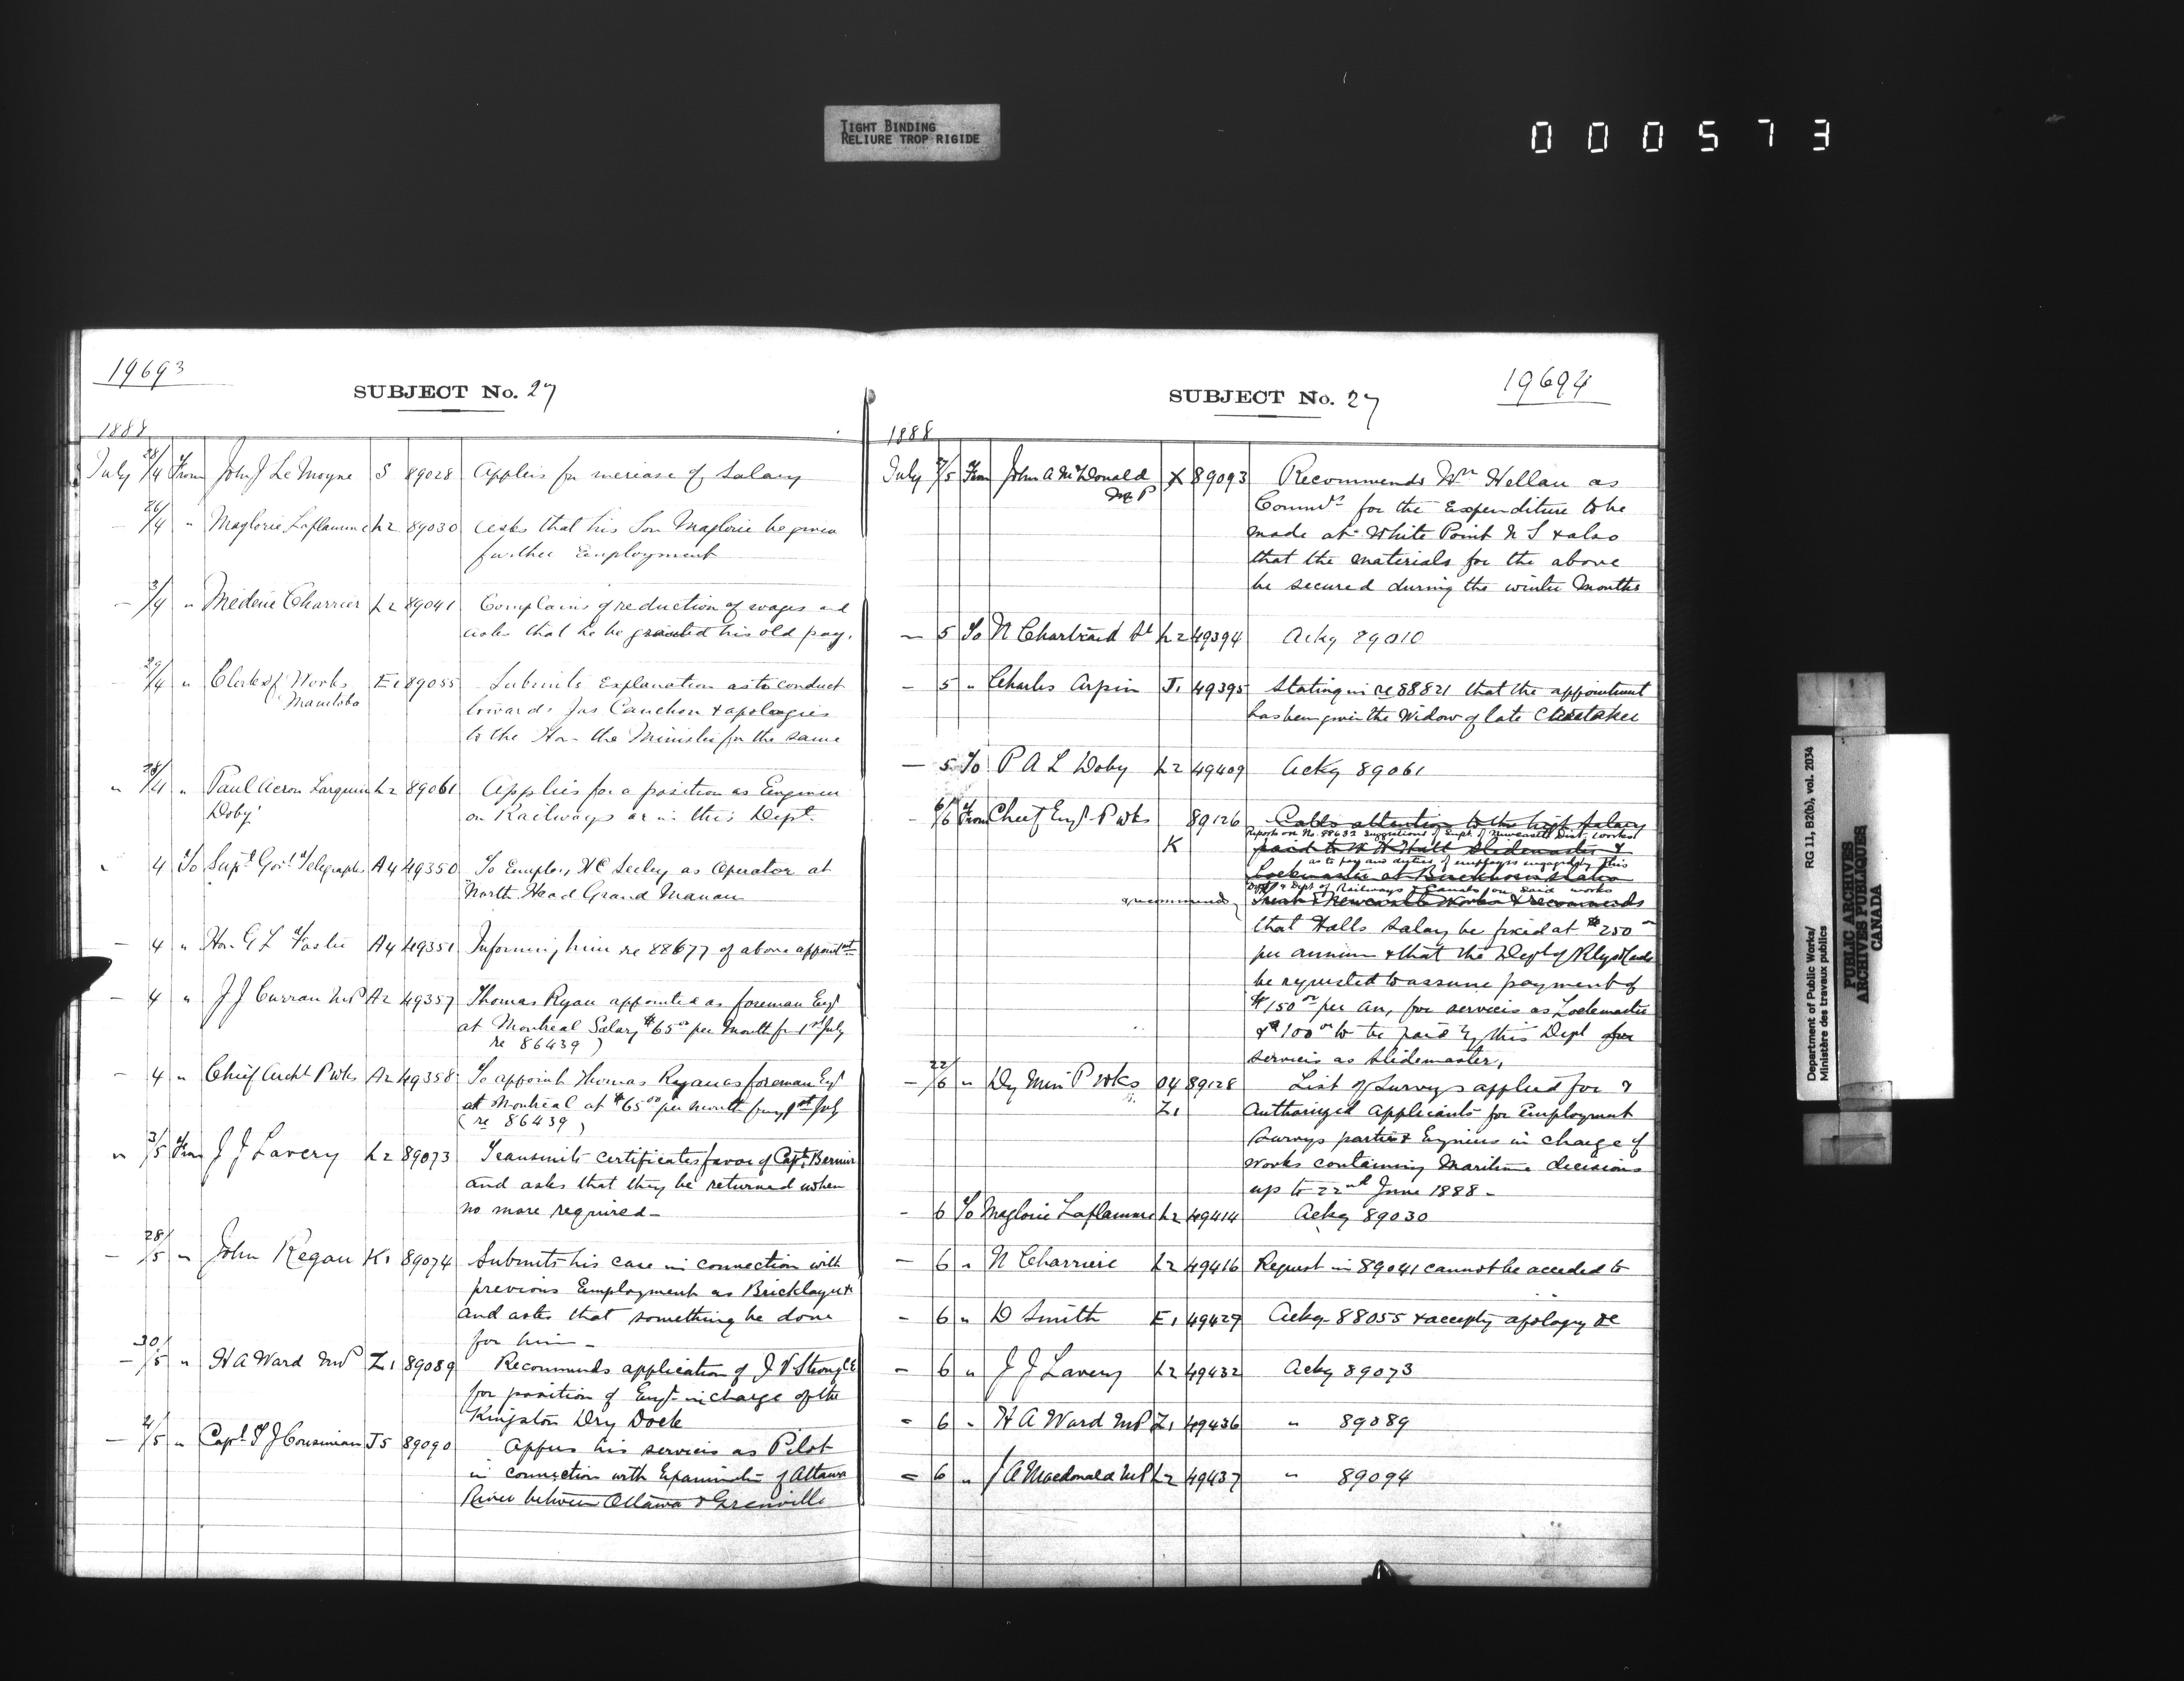 TIGHT BINDING
RELIURE TROP RIGIDE
000573
19693
SUBJECT No. 27
1888
July 28/4 From John J Le Moyne S 89028 Applies for increase of Salary
— 26/4 " Maglorie Laflamme L2 89030 asks that his Son Maglorie be given
further Employment
— 3/4 " Mederic Charrier L2 89041 Complains of reduction of wages and
asks that he be granted his old pay.
— 29/4 " Clerk of Works E1 89055 Submits Explanation as to conduct
Manitoba
towards Jas Cauchon & apologies
to the Hon the Minister for the same
" 28/4 " Paul Acron Larquin L2 89061 Applies for a position as Engineer
Doby
on Railways or in this Dept.
4 To Supt Govt Telegraphs A4 49350 To Employ HC Seeley as Operator at
North Head Grand Manan
— 4 " Hon G L Foster A4 49351 Informing him re 88677 of above appointmt
— 4 " J J Curran MP A2 49357 Thomas Ryan appointed as foreman Engr
at Montreal Salary $65 00 per Month fr 1st July
re 86439)
— 4 " Chief Archt P Wks A2 49358 To appoint Thomas Ryan as foreman Engr
at Montreal at $65 00 per month from 1st July
(re 86439)
" 3/5 From J J Lavery L2 89073 Transmits certificates favor of Capt. Bernier
and asks that they be returned when
no more required —
— 28/5 " John Regan K1 89074 Submits his case in connection with
previous Employment as Bricklayer &
and asks that something be done
for him —
— 30/5 " H A Ward MP Z1 89089 Recommends application of J V Strong CE
for position of Engr in charge of the
Kingston Dry Dock
— 4/5 " Capt. J Cousineau J5 89090 Offers his services as Pilot
in connection with Examinatn of Ottawa
River between Ottawa & Grenville
SUBJECT No. 27
19694
1888
July 2/5 From John A McDonald X 89093 Recommends Wm Hellan as
MP
Commr for the Expenditure to be
made at White Point N S & also
that the materials for the above
be secured during the winter Months
— 5 To N Chartrand L2 49394 Ackg 89010
— 5 " Charles Arpin J1 49395 Stating in re 88821 that the appointment
has been given the Widow of late Caretaker
— 5 To P A L Doby L2 49409 Ackg 89061
— 6/6 From Chief Engr P Wks 89126 Calls attention to the high salary
Reports on No. 88632 suggestions of Supt. of Newcastle Dist. works
K paid to W H Hall Slidemaster &
as to pay and duties of employees engaged by this
Lockmaster at Buckhorn
Dept & Dept of Railways & Canals on said works
& recommends
Newcastle works & recommends
that Halls Salary be fixed at $250
per annum & that the Dept of Rlys & Canals
be requested to assume payment of
$150 00 per An, for services as Lockmaster
& $100 00 to be paid by this Dept for
services as Slidemaster,
— 22/6 " Dy Min P Wks O4 89128 List of Surveys applied for &
Z1 Authorized Applicants for Employment
Surveys parties & Engineers in charge of
works containing Maritime decisions
up to 22nd June 1888 —
— 6 To Maglorie Laflamme L2 49414 Ackg 89030
— 6 " N Charriere L2 49416 Request in 89041 cannot be acceded to
— 6 " D Smith E1 49429 Ackg 88055 & accepty apology &c
— 6 " J J Lavery L2 49432 Ackg 89073
— 6 " H A Ward MP Z1 49436 " 89089
— 6 " J A Macdonald MP L2 49437 " 89094
Department of Public Works/ RG 11, B2(b), vol. 2034
Ministère des travaux publics
PUBLIC ARCHIVES
ARCHIVES PUBLIQUES
CANADA